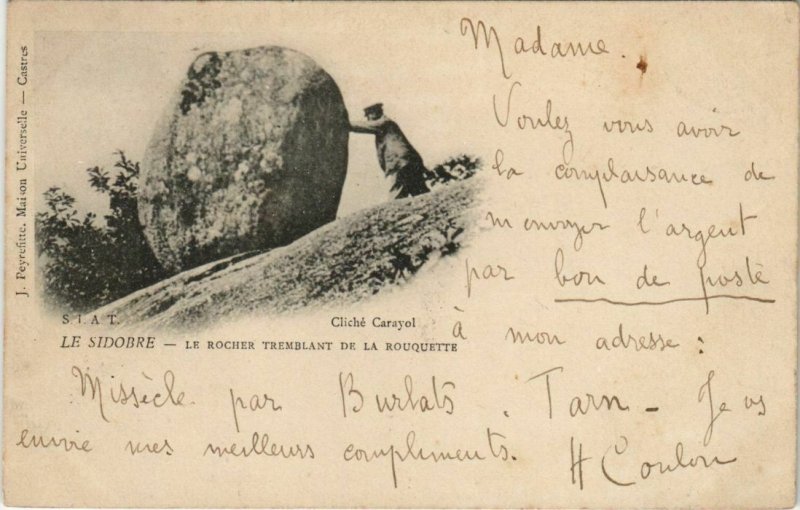 J. Peyrefitte, Maison Universelle — Castres
Madame.
Voulez vous avoir
la complaisance de
m'envoyer l'argent
par bon de poste
à mon adresse :
S. I. A. T.
Cliché Carayol
LE SIDOBRE — LE ROCHER TREMBLANT DE LA ROUQUETTE
Missècle par Burlats. Tarn — Je vs
envie mes meilleurs compliments.
H Coulon